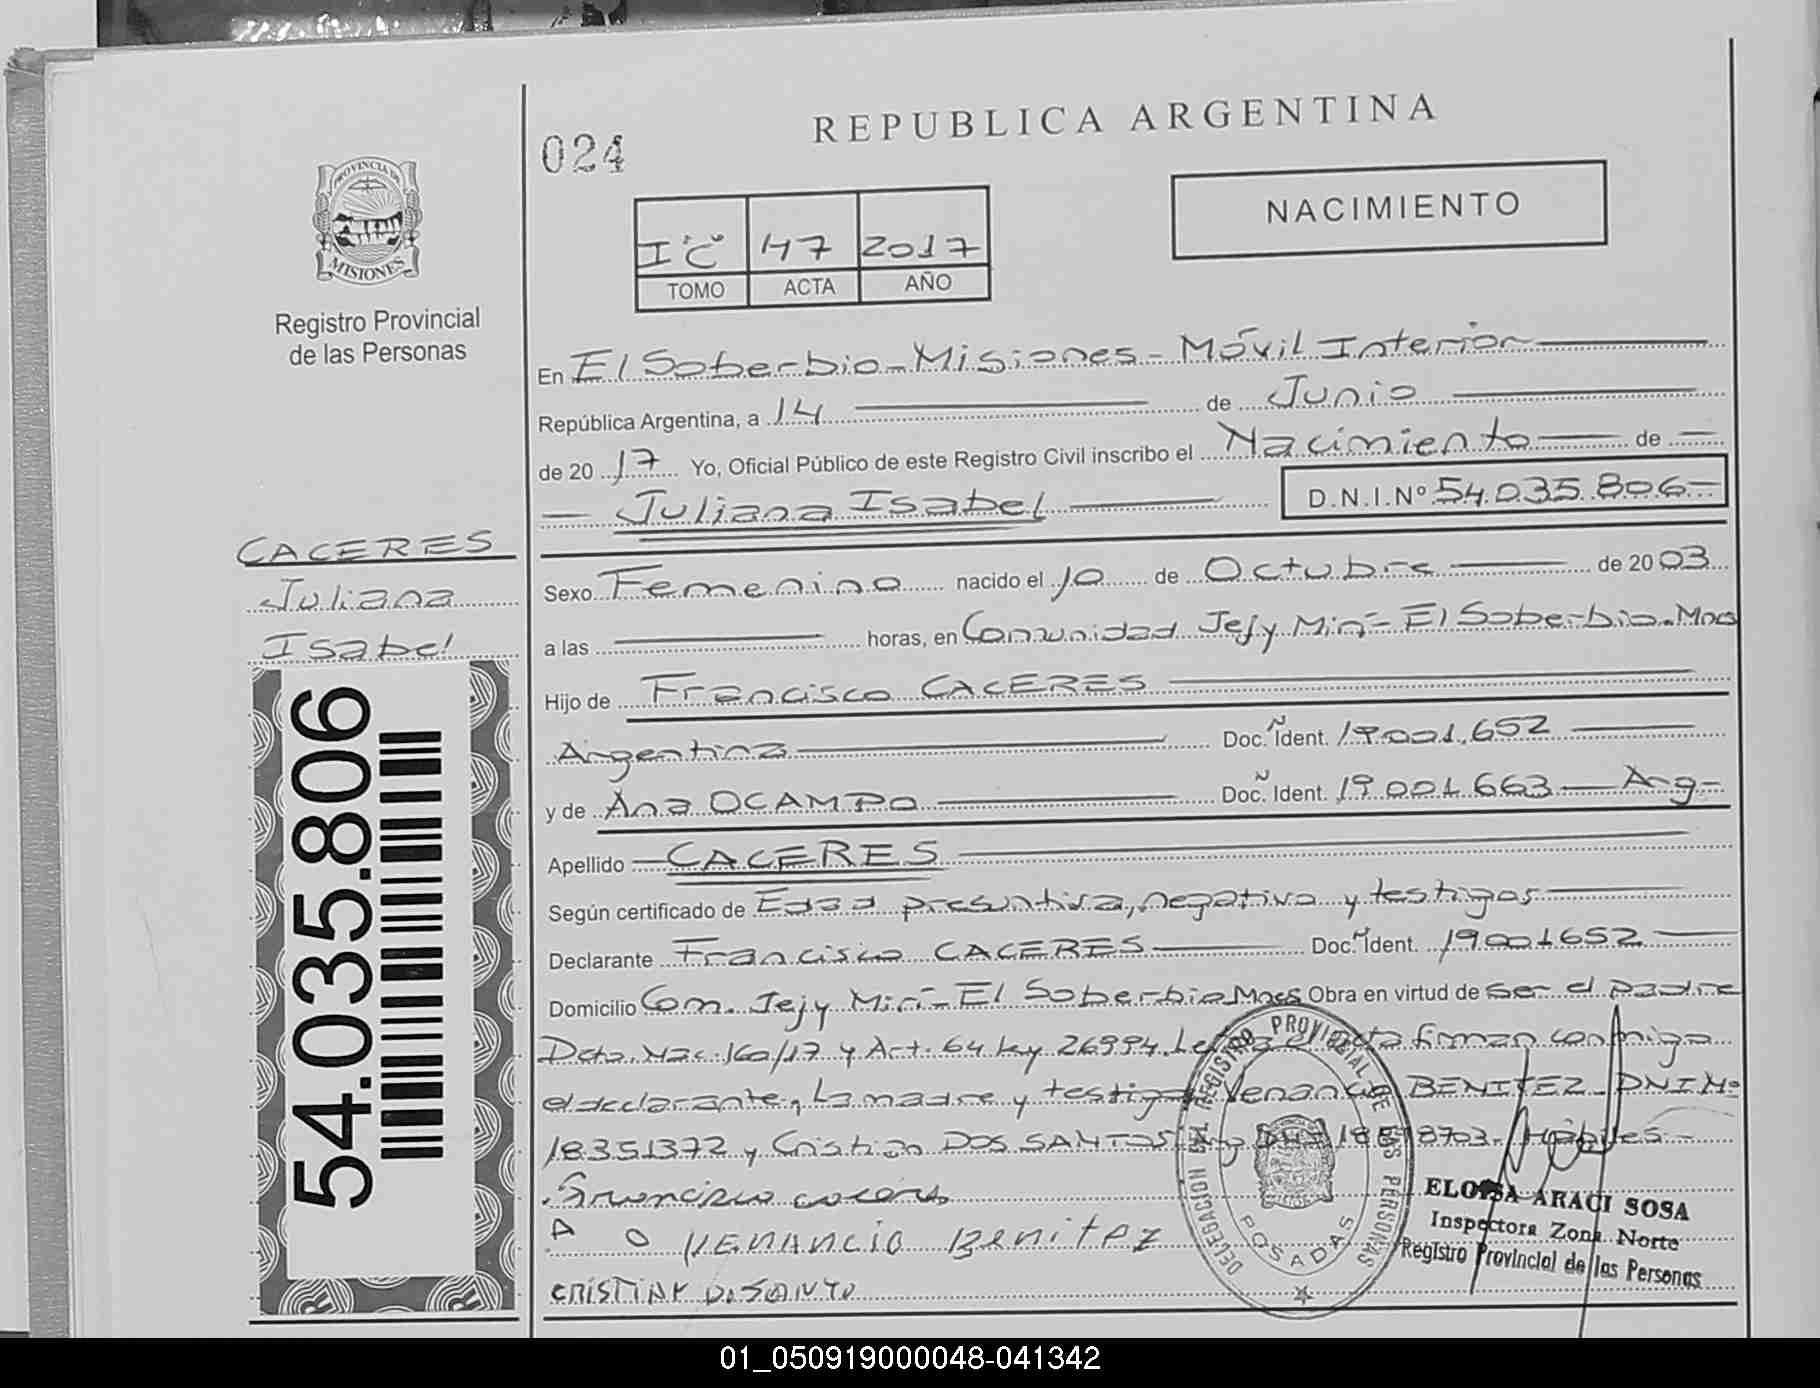 REPUBLICA ARGENTINA
024
PROVINCIA DE
MISIONES
Registro Provincial
de las Personas
NACIMIENTO
I "C" 47 2017
TOMO ACTA AÑO
En El Soberbio - Misiones - Móvil Interior
República Argentina, a 14 de Junio
de 20 17 Yo, Oficial Público de este Registro Civil inscribo el Nacimiento de
Juliana Isabel D.N.I.Nº 54.035.806
CACERES
Juliana
Isabel
54.035.806
Sexo Femenino nacido el 10 de Octubre de 20 03
a las horas, en Comunidad Jejy Miri - El Soberbio - Mnes
Hijo de Francisco CACERES
Argentina Doc. Ñ Ident. 19.001.652
y de Ana OCAMPO Doc. Ñ Ident. 19.001.663 Arg-
Apellido CACERES
Según certificado de Edad presuntiva, negativa y testigos
Declarante Francisco CACERES Doc. Ñ Ident. 19001652
Domicilio Com. Jejy Miri - El Soberbio Mnes Obra en virtud de ser el padre
Dcto. Nac. 160/17 y Art. 64 Ley 26994. el acta firman conmigo
el declarante, la madre y testigos Venancio BENITEZ DNI Nº
18351372 y Cristian DOS SANTOS Hábiles -
Francisco caceres
A O VENANCIO BENITEZ
CRISTIAN D. SANTO
DELEGACION DEL REGISTRO PROVINCIAL DE LAS PERSONAS
POSADAS
ELOISA ARACI SOSA
Inspectora Zona Norte
Registro Provincial de las Personas
01_050919000048-041342